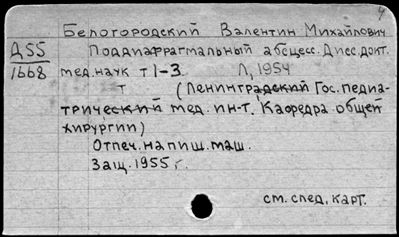 4
Белогородский Валентин Михайлович
Д55 Поддиафрагмальный абсцесс. Дисс. докт.
1668 мед. наук т 1-3 Л, 1954
т (Ленинградский Гос. педиа-
трический мед. ин-т, Кафедра общей
хирургии)
Отпеч. на пиш. маш.
Защ. 1955 г.
см. след. карт.